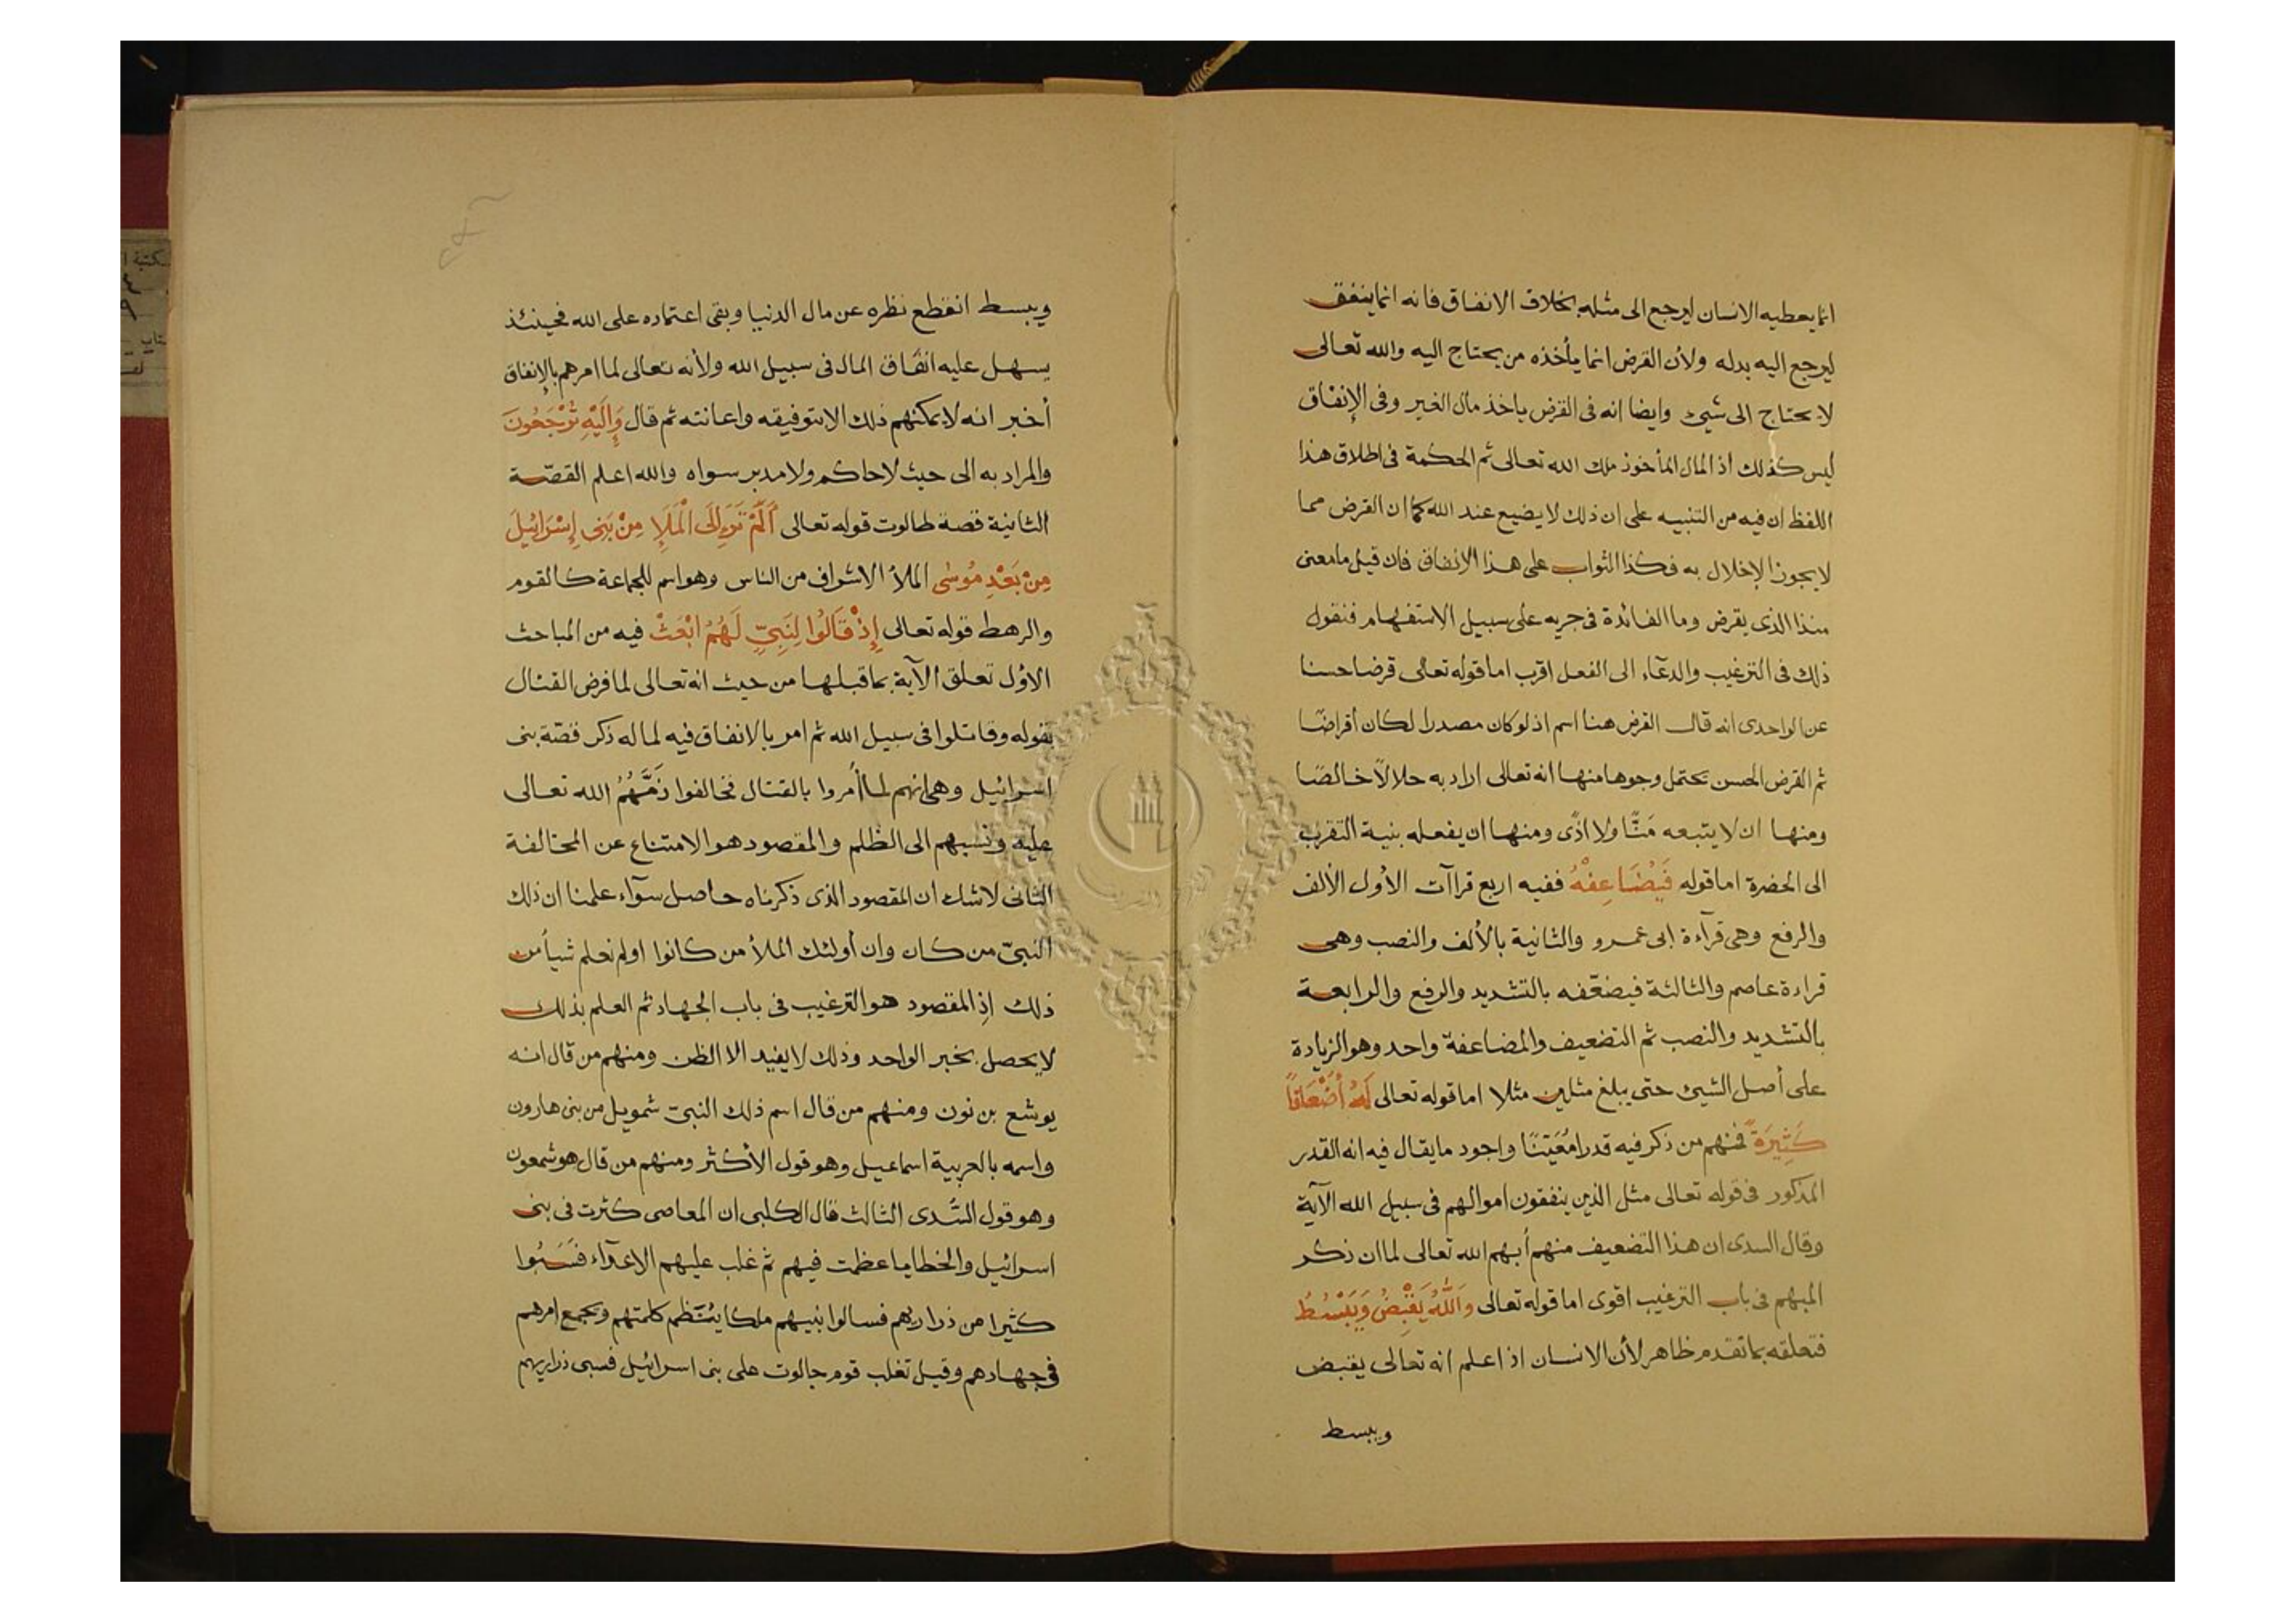 انما يعطيه الانسان ليرجع الى مثله بخلاف الانفاق فانه انما ينفق
ليرجع اليه بدله ولأن القرض انما يأخذه من يحتاج اليه والله تعالى
لا يحتاج الى شيئ وايضا انه فى القرض ياخذ مال الغير وفى الإنفاق
ليس كذلك اذ المال المأخوذ ملك الله تعالى ثم الحكمة فى اطلاق هذا
اللفظ ان فيه من التنبيه على ان ذلك لا يضيع عند الله كما ان القرض مما
لا يجوز الإخلال به فكذا الثواب على هذا الانفاق فان قيل ما معنى
منذا الذى يقرض وما الفائدة فى جريه على سبيل الاستفهام فنقول
ذلك فى الترغيب والدعآء الى الفعل اقرب اما قوله تعالى قرضا حسنا
عن الواحدى انه قال القرض هنا اسم اذ لو كان مصدرا لكان أقراضًا
ثم القرض الحسن يحتمل وجوها منها انه تعالى اراد به حلالًا خالصًا
ومنها ان لا يتبعه مَنًّا ولا اذًى ومنها ان يفعله بنية التقرب
الى الحضرة اما قوله فَيُضَاعِفْهُ ففيه اربع قراآت الأول الألف
والرفع وهى قرآءة ابى عمرو والثانية بالألف والنصب وهى
قراءة عاصم والثالثة فيضعّفه بالتشديد والرفع والرابعة
بالتشديد والنصب ثم التضعيف والمضاعفة واحد وهو الزيادة
على أصل الشيئ حتى يبلغ مثلين مثلا اما قوله تعالى لَهُ أَضْعَافًا
كَثِيرَةً فمنهم من ذكر فيه قدرا مُعَيَّنًا واجود ما يقال فيه انه القدر
المذكور فى قوله تعالى مثل الذين ينفقون اموالهم فى سبيل الله الآية
وقال السدى ان هذا التضعيف منهم أبهم الله تعالى لما ان ذكر
المبهم فى باب الترغيب اقوى اما قوله تعالى وَاللَّهُ يَقْبِضُ وَيَبْسُطُ
فتعلقه بما تقدم ظاهر لأن الانسان اذا علم انه تعالى يقبض
ويبسط
ويبسط انقطع نظره عن مال الدنيا وبقى اعتماده على الله فحينئذ
يسهل عليه انفاق المال فى سبيل الله ولأنه تعالى لما امرهم بالإنفاق
أخبر انه لا يمكنهم ذلك الا بتوفيقه واعانته ثم قال وَإِلَيْهِ تُرْجَعُونَ
والمراد به الى حيث لا حاكم ولا مدبر سواه والله اعلم القصّة
الثانية قصة طالوت قوله تعالى أَلَمْ تَرَ إِلَى الْمَلَإِ مِنْ بَنِى إِسْرَائِيلَ
مِنْ بَعْدِ مُوسَى الملأ الاشراف من الناس وهو اسم للجماعة كالقوم
والرهط قوله تعالى إِذْ قَالُوا لِنَبِيٍّ لَهُمُ ابْعَثْ فيه من المباحث
الاوّل تعلق الآية بما قبلها من حيث انه تعالى لما فرض القتال
بقوله وقاتلوا فى سبيل الله ثم امر بالانفاق فيه لما له ذكر قصّة بنى
اسرائيل وهى انهم لما أمروا بالقتال فخالفوا ذَمَّهُمُ الله تعالى
عليه ونسبهم الى الظلم والمقصود هو الامتناع عن المخالفة
الثانى لا شك ان المقصود الذى ذكرناه حاصل سوآء علمنا ان ذلك
النبىّ من كان وان أولئك الملأ من كانوا او لم نعلم شيأ من
ذلك إذ المقصود هو الترغيب فى باب الجهاد ثم العلم بذلك
لا يحصل بخبر الواحد وذلك لا يفيد الا الظن ومنهم من قال انه
يوشع بن نون ومنهم من قال اسم ذلك النبىّ شمويل من بنى هارون
واسمه بالعربية اسماعيل وهو قول الأكثر ومنهم من قال هو شمعون
وهو قول السُّدى الثالث قال الكلبى ان المعاصى كثرت فى بنى
اسرائيل والخطايا عظمت فيهم ثم غلب عليهم الاعدآء فَسَبُوا
كثيرا من ذراريهم فسالوا نبيهم ملكا يَنْتَظِم كلمتهم ويجمع امرهم
فى جهادهم وقيل تغلب قوم جالوت على بنى اسرائيل فسبى ذراريهم